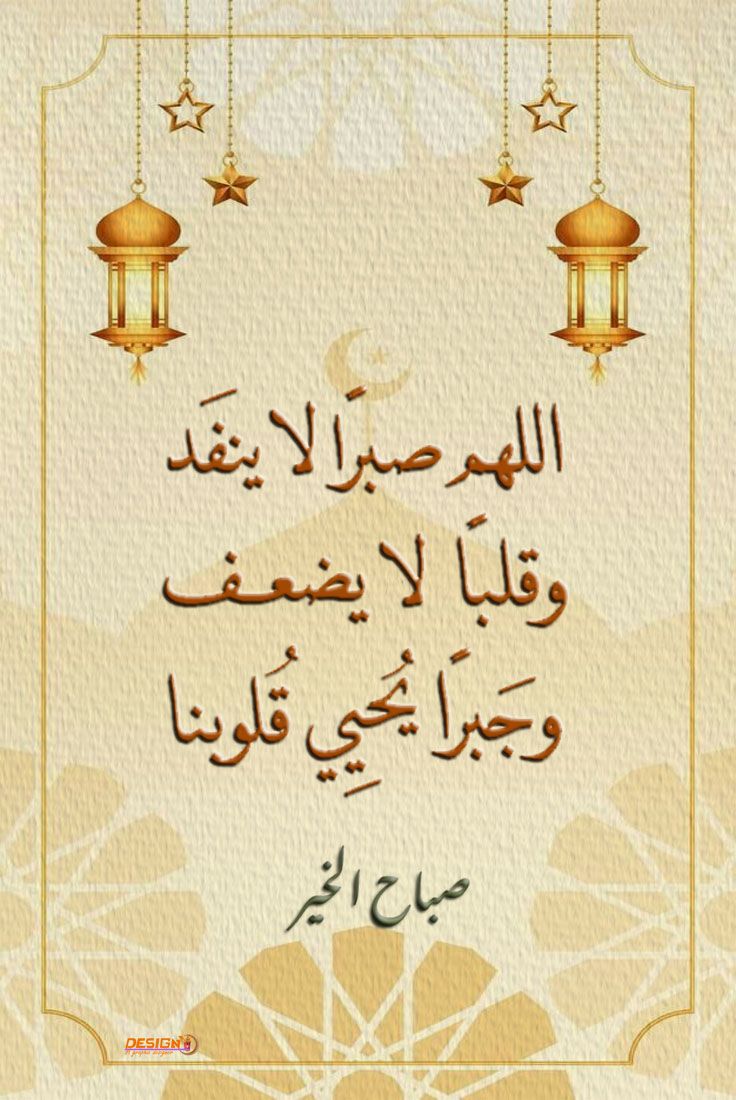 اللهم صبرًا لا ينفَد
وقلبًا لا يضعف
وجَبرًا يُحيِي قُلوبنا
صباح الخير
DESIGN